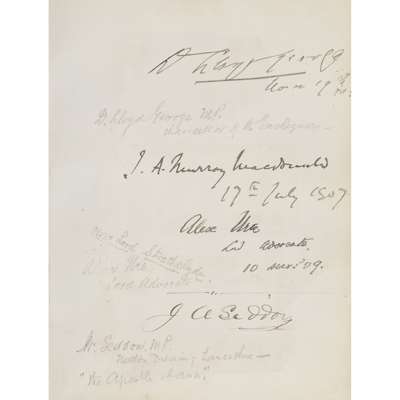 D Lloyd George
D. Lloyd George M.P.
Chancellor of the Exchequer —
J. A. Murray Macdonald
17th July 1907
Alex Ure
Ld advocate.
10 '09.
now Lord Strathclyde
Alex Ure
Lord Advocate
J A Seddon
Mr Seddon, M.P.
Newton Division, Lancashire —
"The